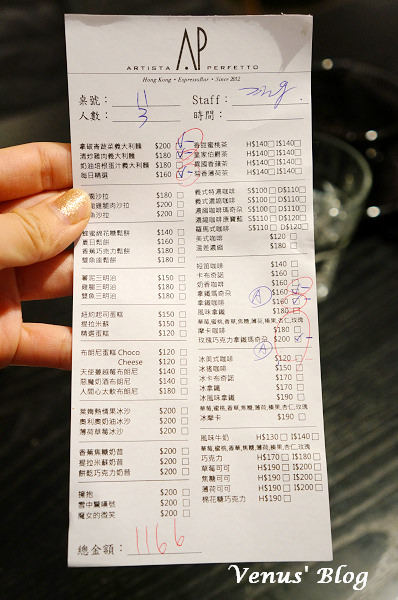 AP
ARTISTA PERFETTO
Hong Kong • EspressoBar • Since 2012
桌號： 11 Staff：
人數： 3 時間：
拿破崙蔬菜義大利麵 $200
清炒雞肉義大利麵 $180
奶油培根蛋汁義大利麵 $180
每日精選 $160
沙拉 $180
雞肉沙拉 $200
魚沙拉 $200
蜂蜜綿花糖鬆餅 $180
夏日鬆餅 $160
香蕉巧克力鬆餅 $180
雙魚座鬆餅 $180
薯泥三明治 $150
雞腿三明治 $180
雙魚三明治 $180
紐約起司蛋糕 $150
提拉米蘇 $150
精選蛋糕 $120
布朗尼蛋糕 Choco $120
Cheese $120
天使蔓越莓布朗尼 $140
惡魔奶酒布朗尼 $140
人間心太軟布朗尼 $140
萊姆熱情果冰沙 $200
奧利奧奶油冰沙 $200
薄荷草莓冰沙 $200
香蕉焦糖奶昔 $200
提拉米蘇奶昔 $200
餅乾巧克力奶昔 $200
擁抱 $200
雪中雙嬌號 $200
魔女的微笑 $200
總金額： 1166
香甜蜜桃茶 H$140 I$140
皇家伯爵茶 H$140 I$140
異國香蘋茶 H$140 I$140
香薄荷茶 H$140 I$140
義式特濃咖啡 S$100 D$110
義式濃縮咖啡 S$100 D$110
濃縮咖啡瑪奇朵 S$100 D$110
濃縮咖啡康寶藍 S$100 D$110
羅馬式咖啡 S$100 D$110
美式咖啡 $120
溫差濃縮 $180
短笛咖啡 $140
卡布奇諾 $140
奶香咖啡 $160
拿鐵瑪奇朵 $160
A 拿鐵咖啡 $160
風味拿鐵 $180
華莓,蜜桃,香草,焦糖,薄荷,榛果,杏仁,玫瑰
摩卡咖啡 $180
玫瑰巧克力拿鐵瑪奇朵 $200
A
冰美式咖啡 $120
冰滴咖啡 $150
冰卡布奇諾 $170
冰拿鐵 $170
冰風味拿鐵 $190
華莓,蜜桃,香草,焦糖,薄荷,榛果,杏仁,玫瑰
冰摩卡 $190
風味牛奶 H$130 I$140
華莓,蜜桃,香草,焦糖,薄荷,榛果,杏仁,玫瑰
巧克力 H$170 I$180
草莓可可 H$190 I$200
焦糖可可 H$190 I$200
薄荷可可 H$190 I$200
棉花糖巧克力 H$190
Venus' Blog